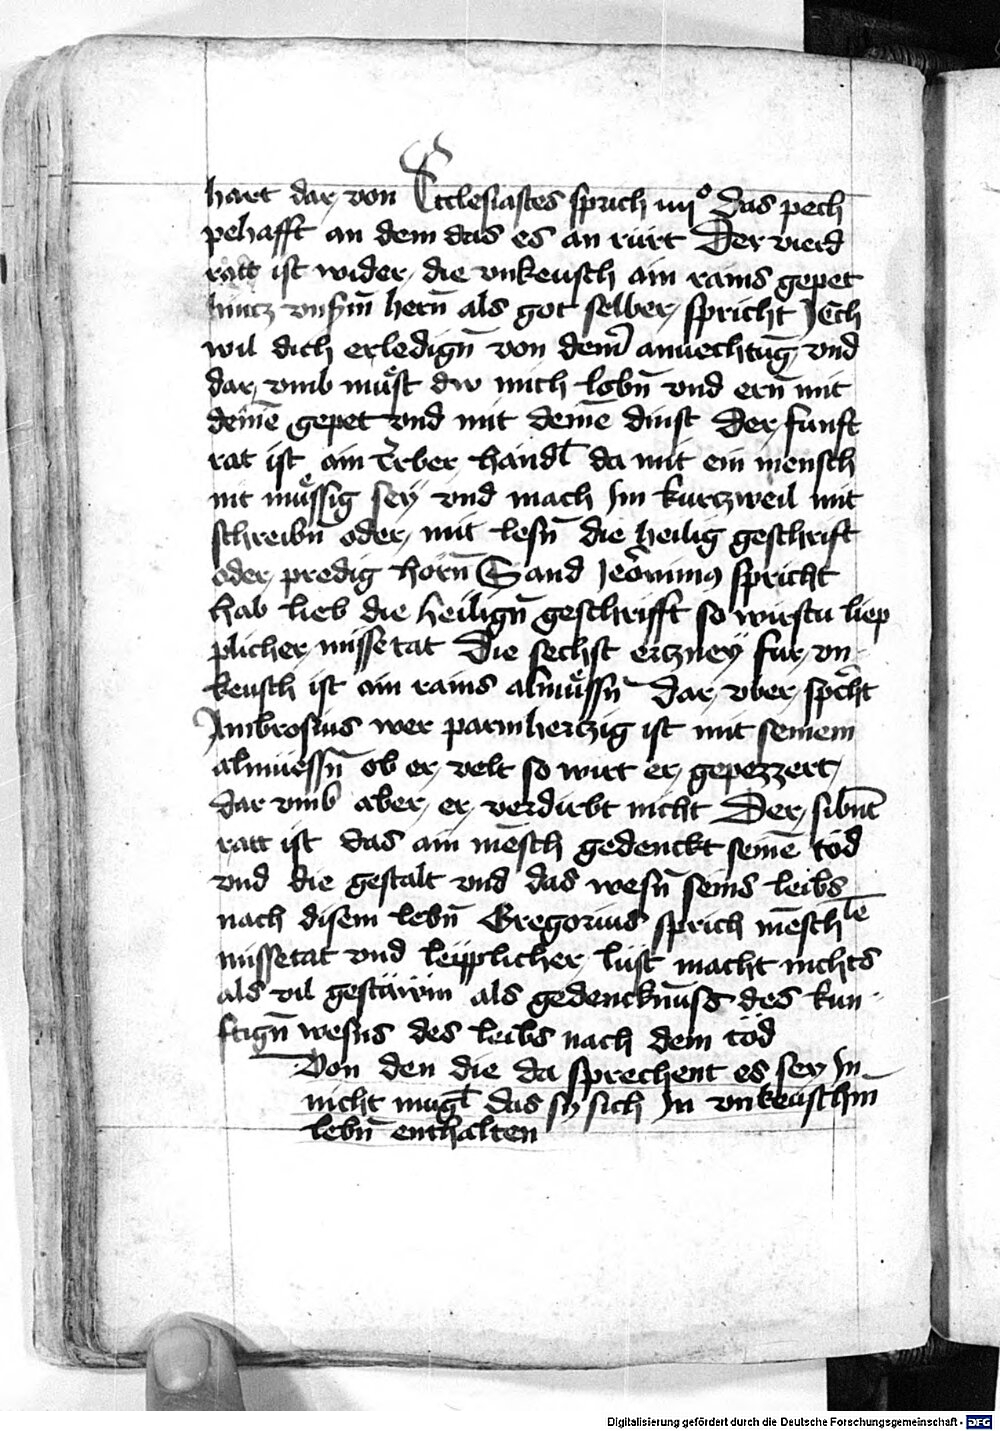 hart dar von Ecclesiastes sprich iiij° Das pech
pehafft an dem das es an rürt Der vierd
ratt ist wider die vnkeusch ain rains gepet
hintz vnsm̄ hern̄ als got selber spricht Ich
wil dich erledign̄ von dem anuechtūg vnd
dar vmb muͤst dw mich lobn̄ vnd ern̄ mit
deinē gepet vnd mit deinē dinst Der funft
rat ist ain erber handl da mit ein mensch
nit muͤssig seÿ vnd mach Im kurtzweil mit
schreibn̄ oder mit lesn̄ die heilig geschrift
oder predig horn̄ Sand Jeronimus spricht
hab lieb die heilign̄ geschrifft so wirstu liep
plicher missetat Die sechst ertzneÿ fur vn-
keusch ist ain rains almuͤssn̄ dar vber spricht
Ambrosius wer parmhertzig ist mit seinem
almüessn̄ ob er velt so wirt er gepezzert
dar vmb aber er verdirbt nicht Der sibn̄t
ratt ist das ain mēsch gedenckt seinē tod
vnd die gestalt vnd das wesn̄ seins leibs
nach disem lebn̄ Gregorius sprich mēschlē
missetat vnd leÿpplicher lüst macht nichts
als vil gestäwm als gedencknuss des kun-
ftign̄ wesns des leibs nach dem töd
Von den die da sprechent es sey In
nicht mugl das sy sich In vnkeuschm̄
lebn̄ enthalten
Digitalisierung gefördert durch die Deutsche Forschungsgemeinschaft - DFG